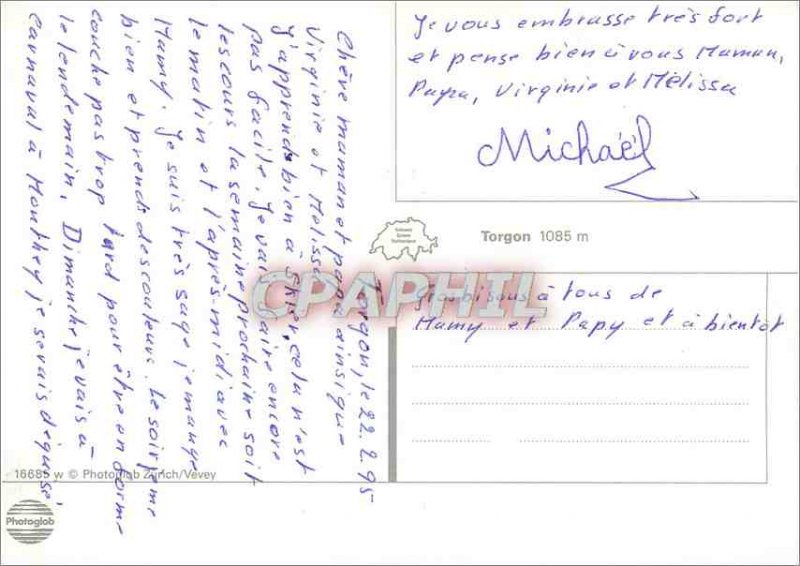 Torgon, le 22.2.95
Chère maman et papa ainsi que
Virginie et Mélissa
J'apprends bien à skier, cela n'est
pas facile. Je vais faire encore
les cours la semaine prochaine soit
le matin et l'après-midi avec
Mamy. Je suis très sage je mange
bien et prends des couleurs. Le soir je me
couche pas trop tard pour être en forme
le lendemain. Dimanche je vais à
carnaval à Monthey je serais déguisé.
Je vous embrasse très fort
et pense bien à vous Maman,
Papa, Virginie et Mélissa
Michaël
Torgon 1085 m
Gros bisous à tous de
Mamy et Papy et à bientôt
CPAPHIL
16685 w © Photoglob Zürich/Vevey
Photoglob